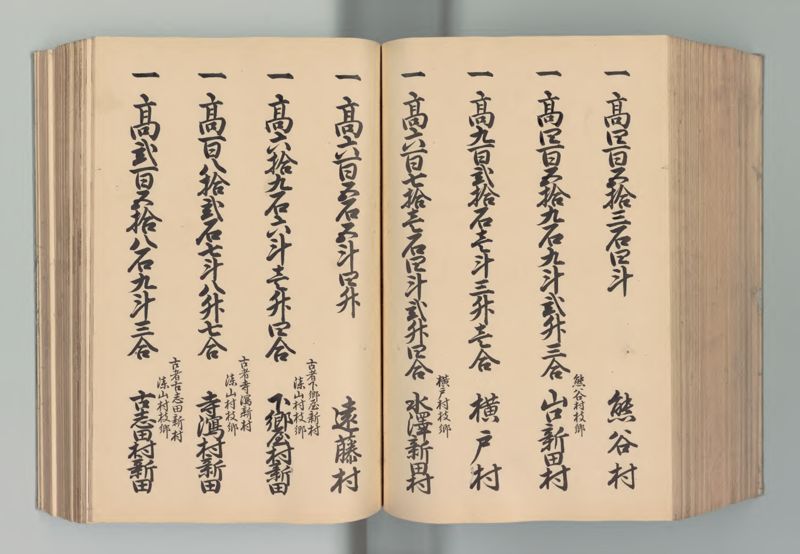 一 高四百五拾三石四斗
熊谷村
一 高四百五拾九石九斗弐升三合
熊谷村枝郷
山口新田村
一 高九百弐拾石壱斗三升壱合
横戸村
一 高六百七拾壱石四斗弐升四合
横戸村枝郷
水澤新田村
一 高六百五石五斗四升
遠藤村
一 高六拾九石六斗壱升四合
古者下郷屋新村
漆山村枝郷
下郷屋村新田
一 高百八拾弐石七斗八升七合
古者寺瀉新村
漆山村枝郷
寺瀉村新田
一 高弐百五拾八石九斗三合
古者古志田新村
漆山村枝郷
古志田村新田